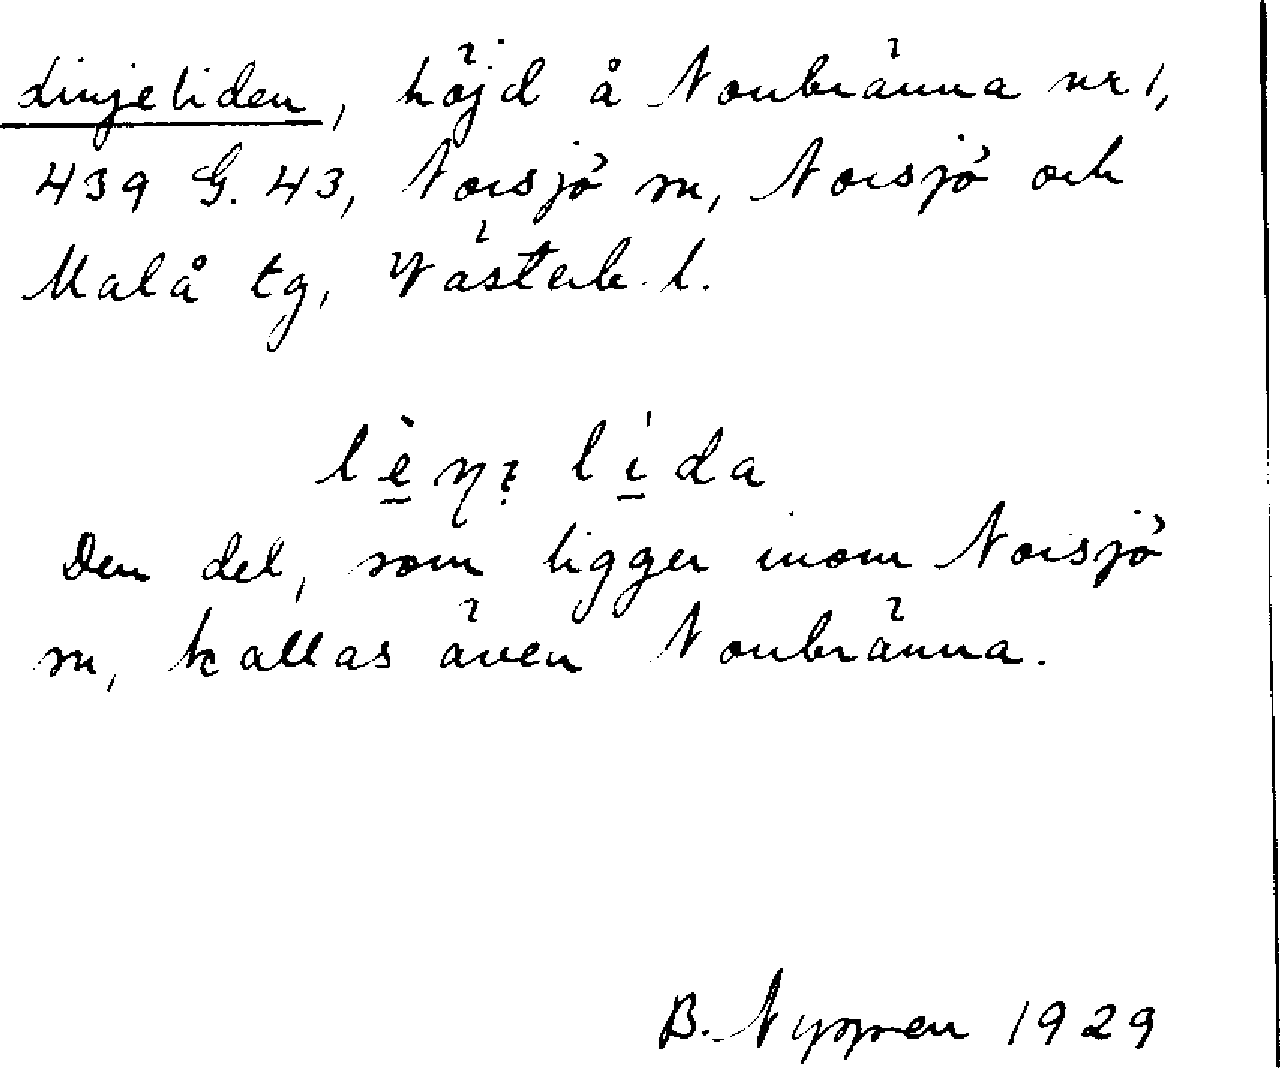 Linjeliden, höjd å Nonbränna nr 1,
439 G. 43, Norsjö sn, Norsjö och
Malå tg, Västerb. l.
lida
Den del, som ligger inom Norsjö
sn, kallas även Nonbränna.
B. 1929